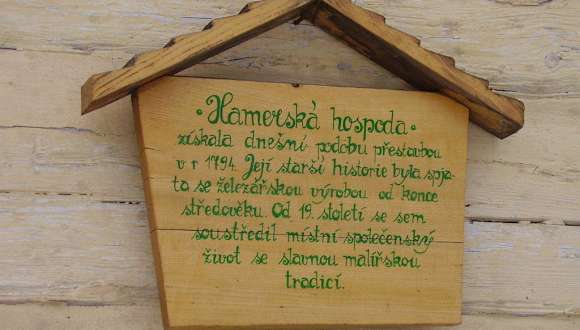 · Hamerská hospoda ·
získala dnešní podobu přestavbou
v r 1794. Její starší historie byla spja-
ta se železářskou výrobou od konce
středověku. Od 19. století se sem
soustředil místní společenský
život se slavnou malířskou
tradicí.